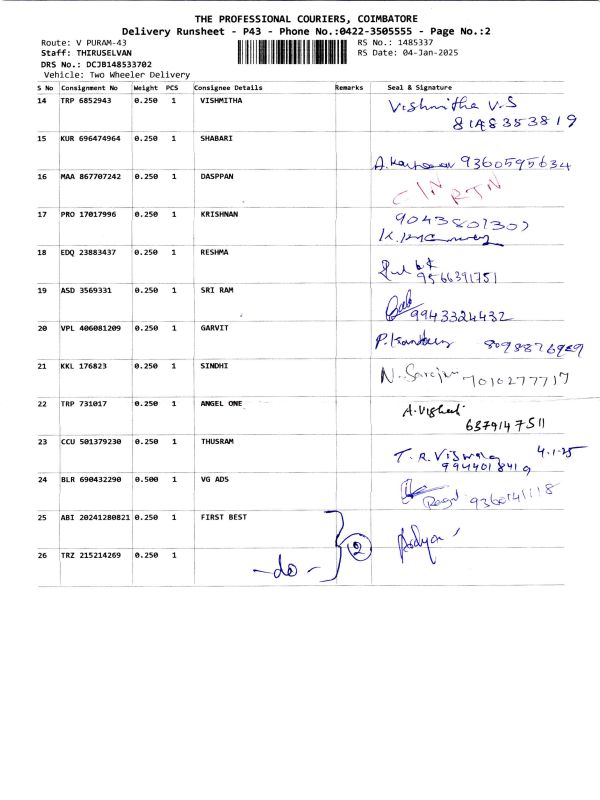 THE PROFESSIONAL COURIERS, COIMBATORE
Delivery Runsheet - P43 - Phone No.:0422-3505555 - Page No.:2
Route: V PURAM-43 RS No.: 1485337
Staff: THIRUSELVAN RS Date: 04-Jan-2025
DRS No.: DCJB148533702
Vehicle: Two Wheeler Delivery
S No Consignment No Weight PCS Consignee Details Remarks Seal & Signature
14 TRP 6852943 0.250 1 VISHMITHA Vishmitha V.S
15 KUR 696474964 0.250 1 SHABARI 9360595634
16 MAA 867707242 0.250 1 DASPPAN RTN
17 PRO 17017996 0.250 1 KRISHNAN
18 EDQ 23883437 0.250 1 RESHMA
9566391751
19 ASD 3569331 0.250 1 SRI RAM
9943324432
20 VPL 406081209 0.250 1 GARVIT
21 KKL 176823 0.250 1 SINDHI 7010277717
22 TRP 731017 0.250 1 ANGEL ONE
6379147511
23 CCU 501379230 0.250 1 THUSRAM T.R. 4-1-25
9944018419
24 BLR 690432290 0.500 1 VG ADS
9360141118
25 ABI 20241280821 0.250 1 FIRST BEST
26 TRZ 215214269 0.250 1 -do- 2